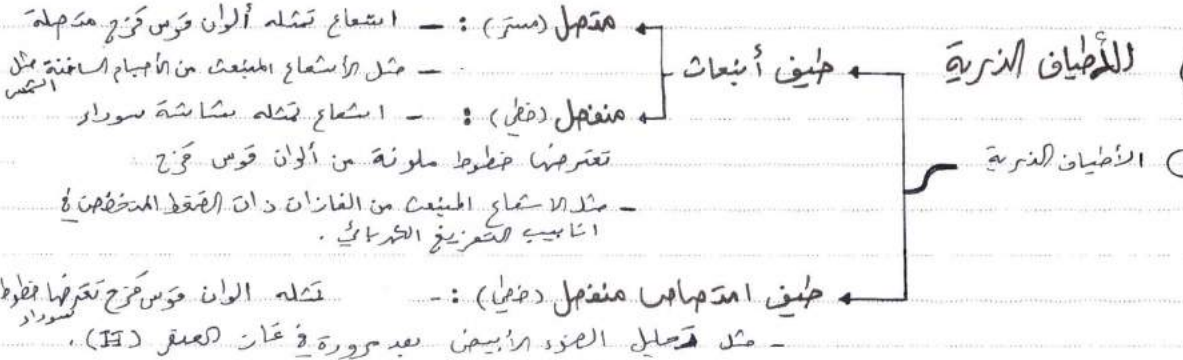 الأطياف الذرية
الأطياف الذرية
طيف أنبعاث
متصل (مستمر) : - اشعاع تمثله ألوان قوس قزح متصلة
- مثل الأشعاع المنبعث من الأجسام الساخنة مثل الشمس
منفصل (خطي) : - اشعاع تمثله شاشة سوداء
تعترضها خطوط ملونة من ألوان قوس قزح
- مثل الاشعاع المنبعث من الغازات ذات الضغط المنخفض في
انابيب التفريغ الكهربائي .
طيف امتصاص منفصل (خطي) : - تمثله الوان قوس قزح تعترضها خطوط سوداء
- مثل تحليل الضوء الأبيض بعد مروره في غاز